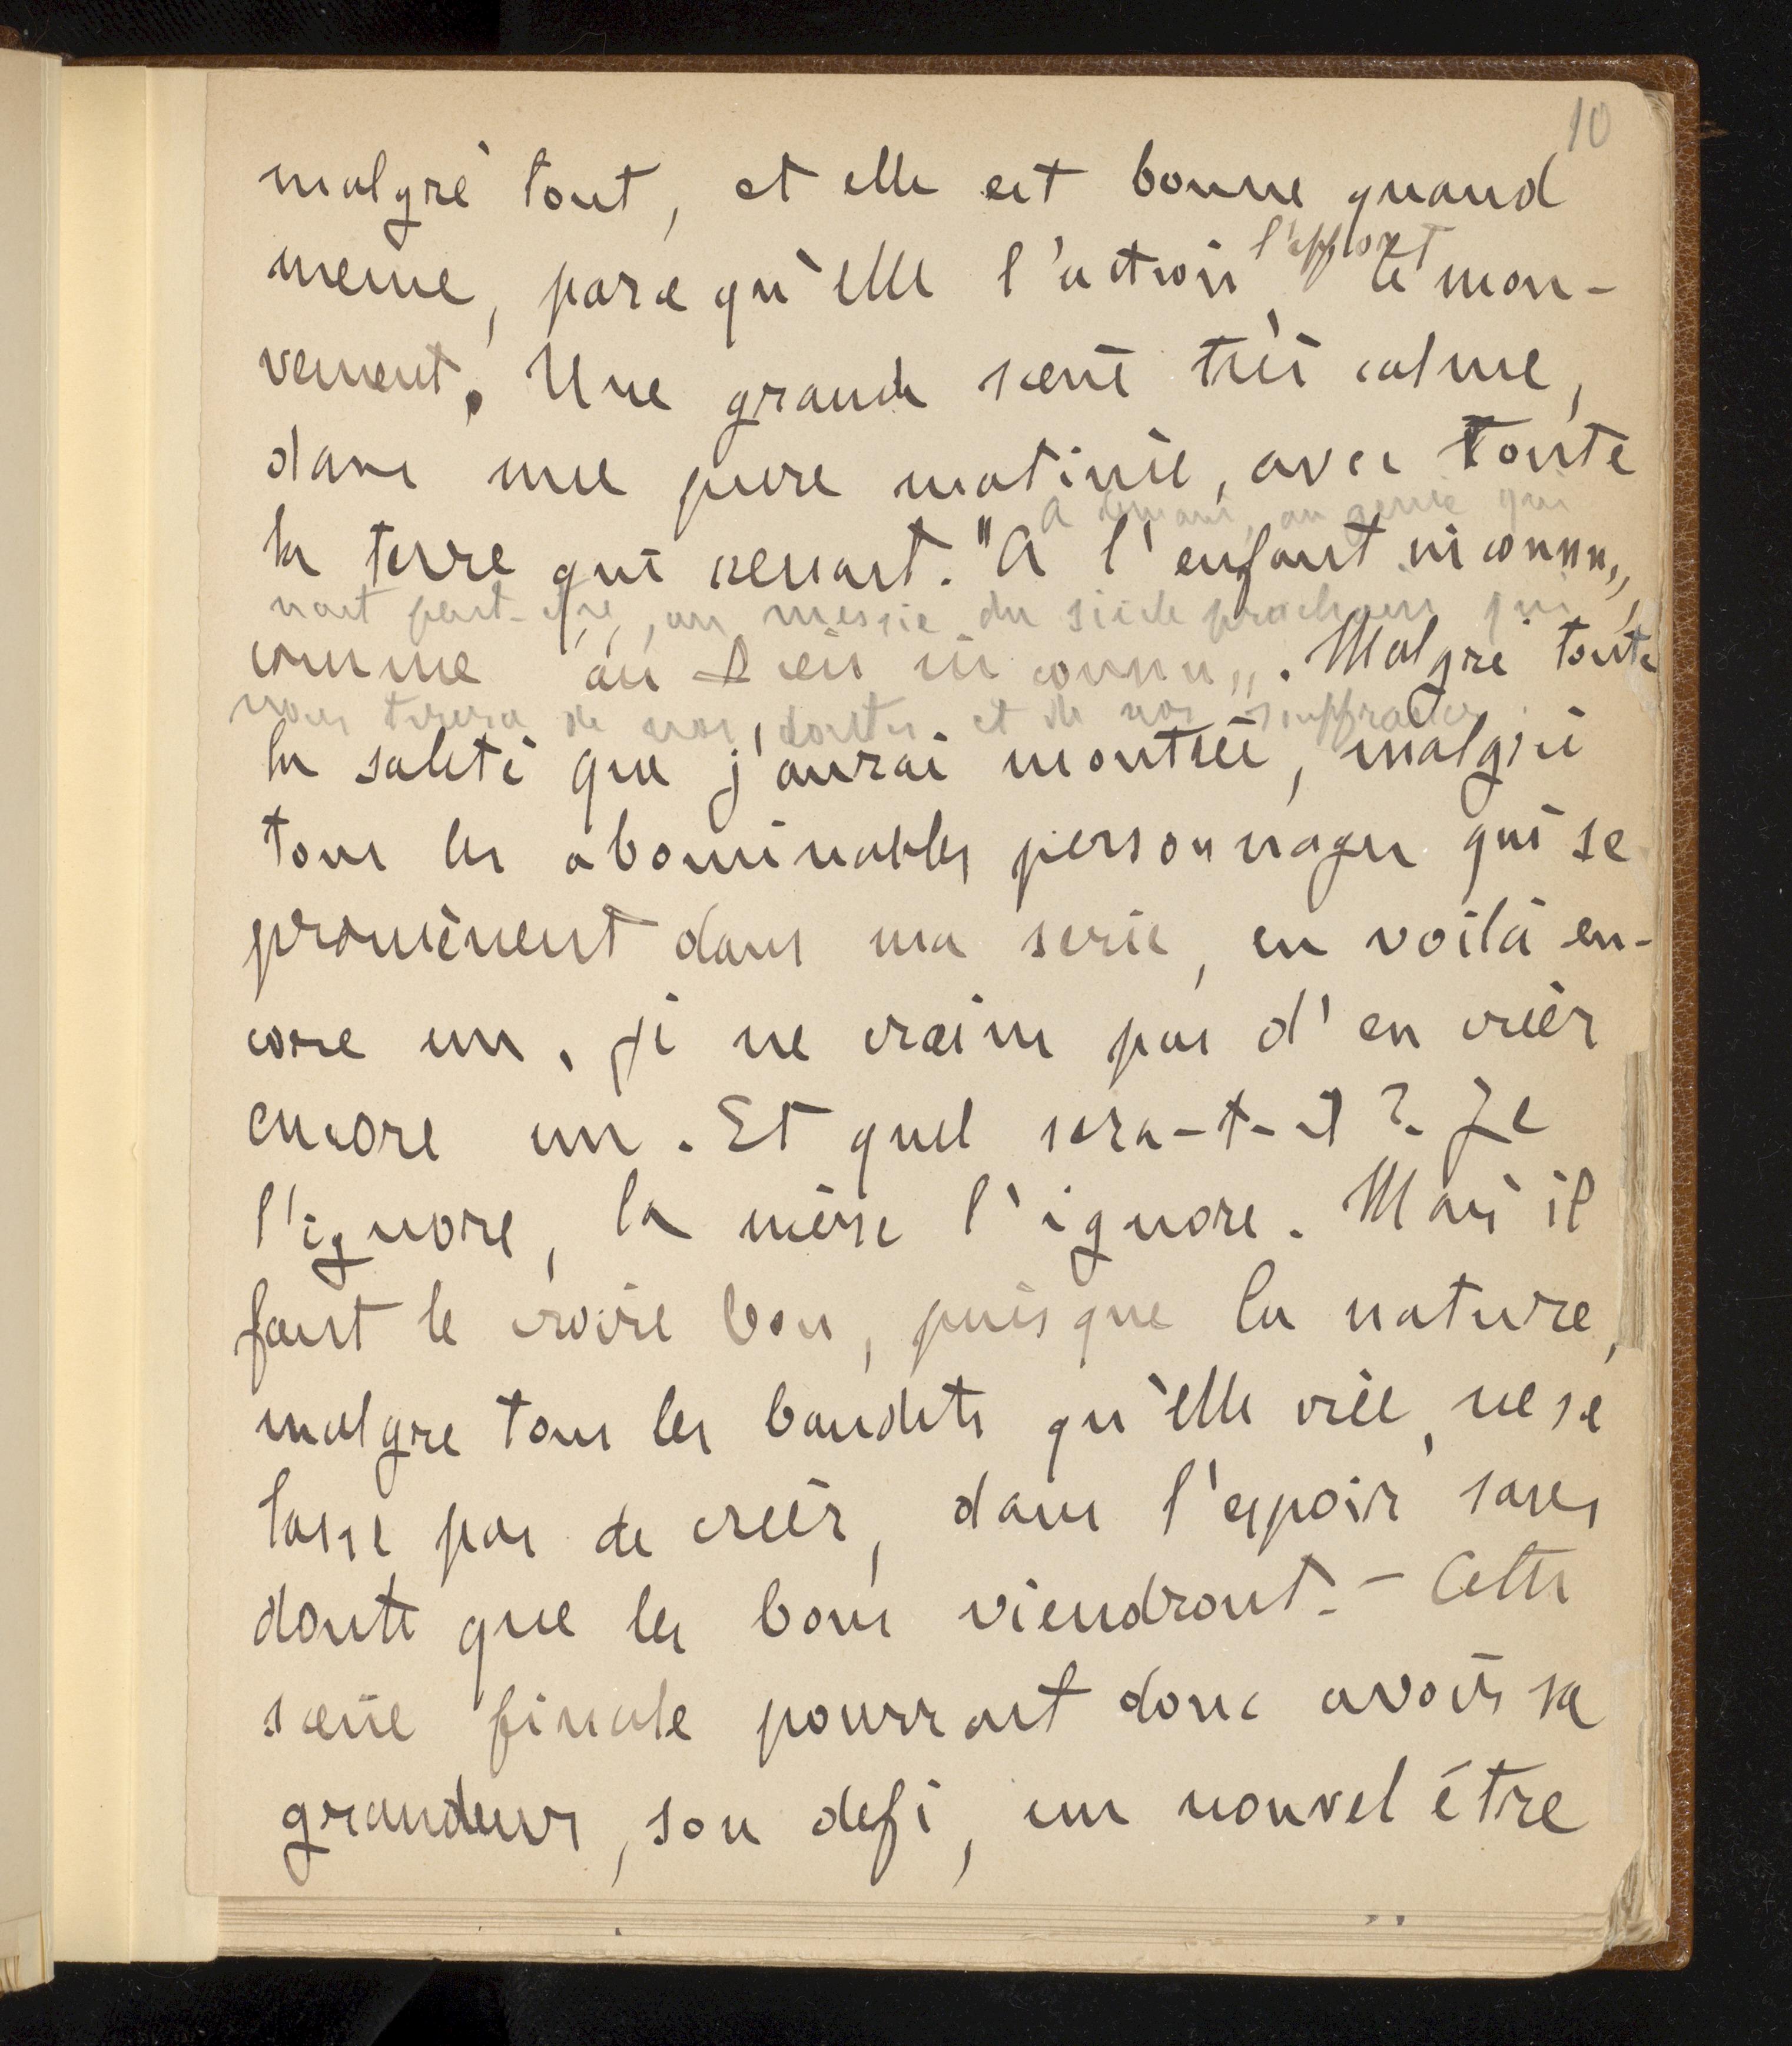 10
malgré tout, et elle est bonne quand
même, parce qu'elle l'action, l'effort le mou-
vement. Une grande scène très calme,
dans une pure matinée, avec toute
A demain, au génie qui
la terre qui renaît. "A l'enfant inconnu",
naît peut-être, au messie du siècle prochain qui
comme "au Dieu inconnu". Malgré toute
nous tirera de nos doutes et de nos souffrances
la saleté que j'aurai montrée, malgré
tous les abominables personnages qui se
promènent dans ma série, en voilà en-
core un, je ne crains pas d'en créer
encore un. Et quel sera-t-il ? Je
l'ignore, la mère l'ignore. Mais il
faut le croire bon, puisque la nature,
malgré tous les bandits qu'elle crée, ne se
lasse pas de créer, dans l'espoir sans
doute que les bons viendront. - Cette
scène finale pourrait donc avoir sa
grandeur, son défi, un nouvel être